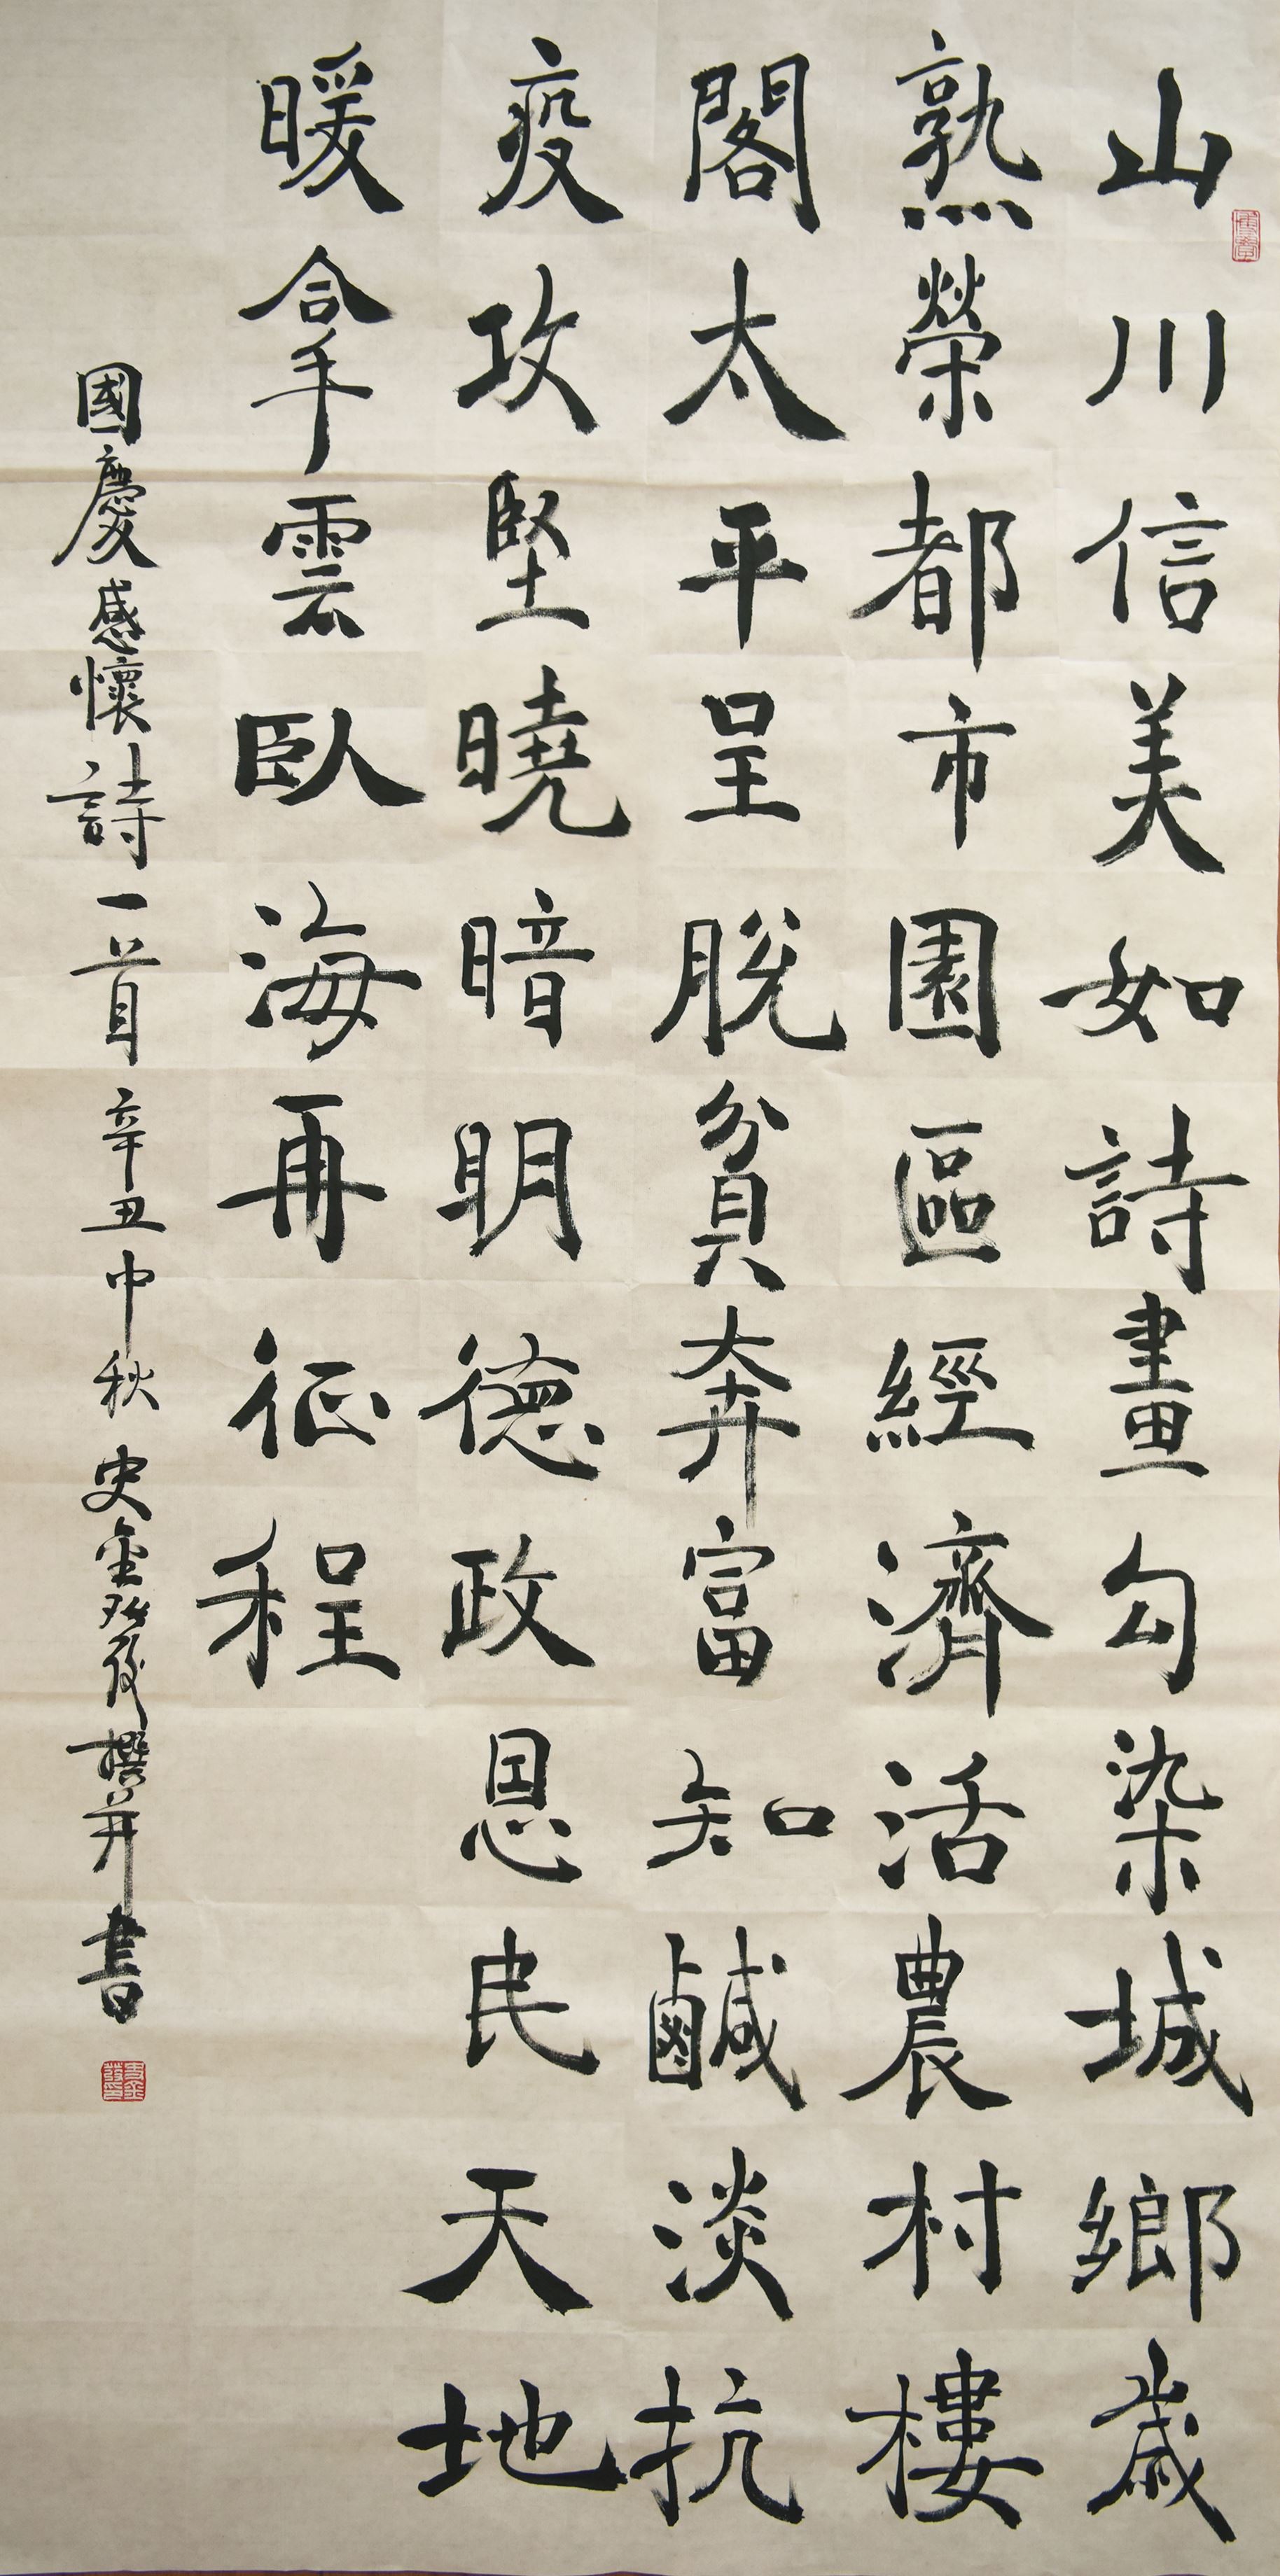 山川信美如詩畫勾染城鄉歲
熟榮都市園區經濟活農村樓
閣太平呈脫貧奔富知鹹淡抗
疫攻堅曉暗明德政恩民天地
暖拿雲臥海再征程
國慶感懷詩一首辛丑中秋史金發撰并書